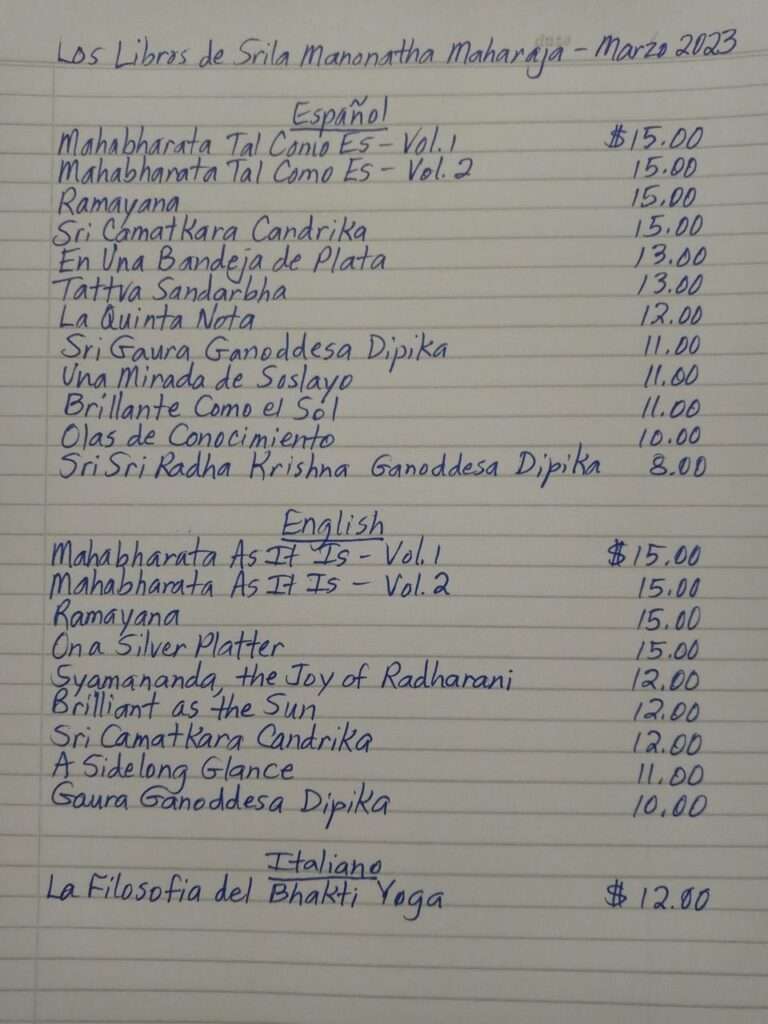 Los Libros de Srila Manonatha Maharaja - Marzo 2023
Español
Mahabharata Tal Como Es - Vol. 1 $15.00
Mahabharata Tal Como Es - Vol. 2 15.00
Ramayana 15.00
Sri Camatkara Candrika 15.00
En Una Bandeja de Plata 13.00
Tattva Sandarbha 13.00
La Quinta Nota 12.00
Sri Gaura Ganoddesa Dipika 11.00
Una Mirada de Soslayo 11.00
Brillante Como el Sol 11.00
Olas de Conocimiento 10.00
Sri Sri Radha Krishna Ganoddesa Dipika 8.00
English
Mahabharata As It Is - Vol. 1 $15.00
Mahabharata As It Is - Vol. 2 15.00
Ramayana 15.00
On a Silver Platter 15.00
Syamananda, the Joy of Radharani 12.00
Brilliant as the Sun 12.00
Sri Camatkara Candrika 12.00
A Sidelong Glance 11.00
Gaura Ganoddesa Dipika 10.00
Italiano
La Filosofia del Bhakti Yoga $12.00